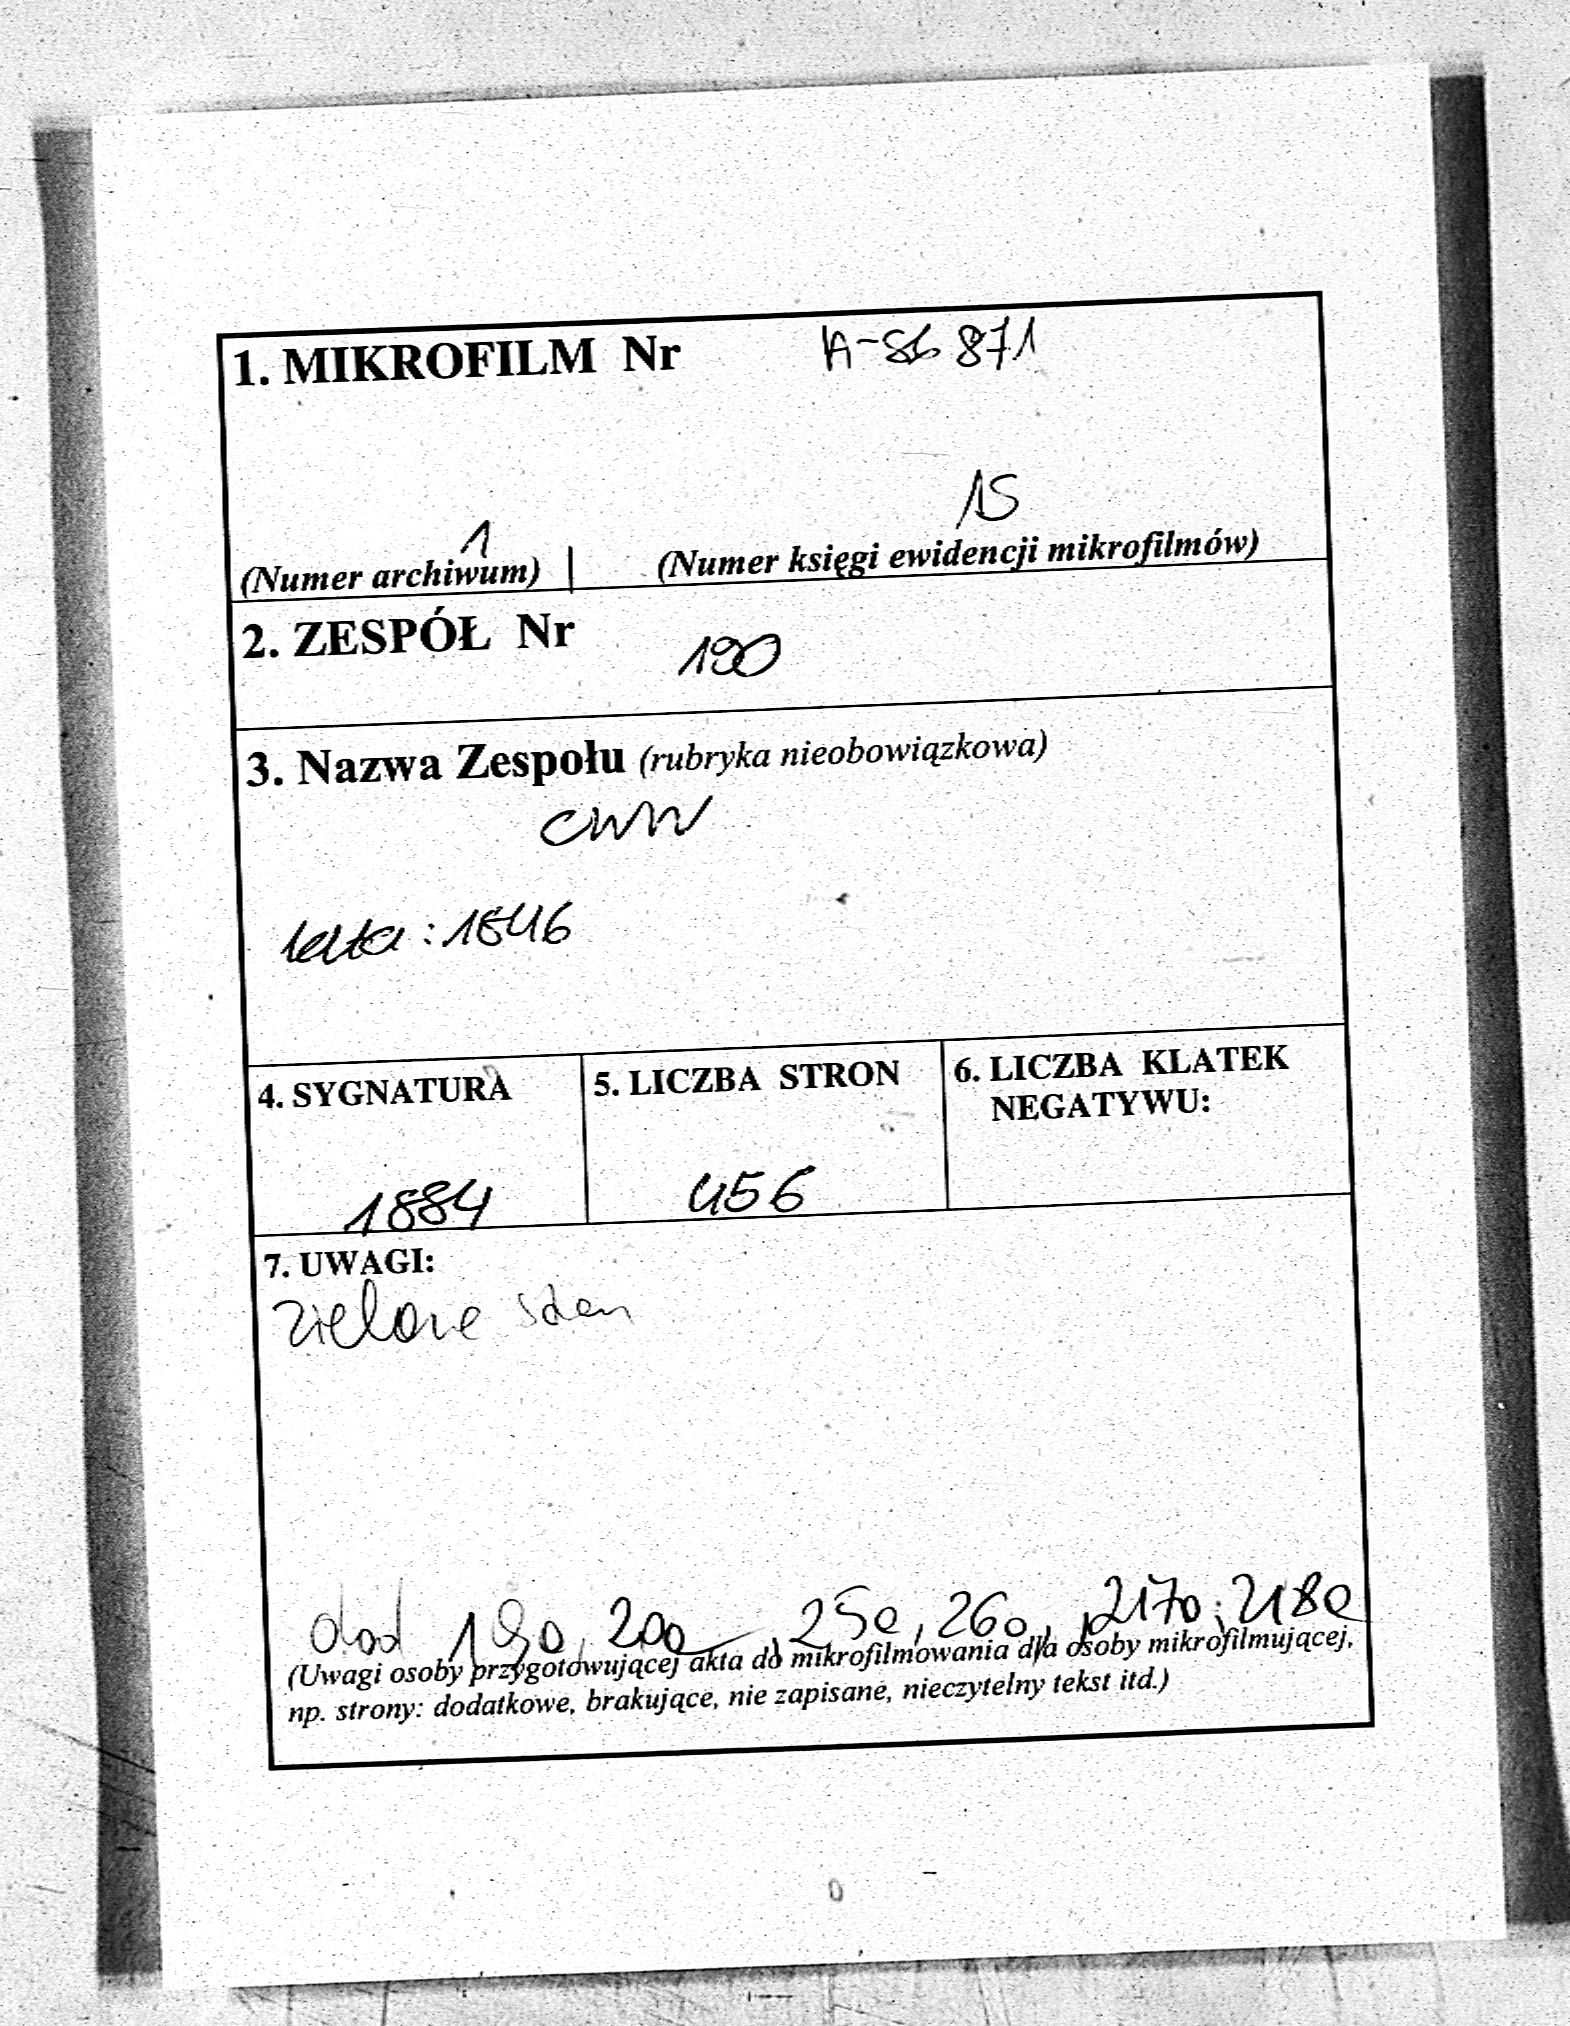 1. MIKROFILM Nr A-86 871
1 15
(Numer archiwum) | (Numer księgi ewidencji mikrofilmów)
2. ZESPÓŁ Nr 190
3. Nazwa Zespołu (rubryka nieobowiązkowa)
CWW
lata : 1846
4. SYGNATURA
1884
5. LICZBA STRON
456
6. LICZBA KLATEK
NEGATYWU:
7. UWAGI:
zielone
dod 19a, 20a, 25a, 26a, 217a, 218a
(Uwagi osoby przygotowującej akta do mikrofilmowania dla osoby mikrofilmującej,
np. strony: dodatkowe, brakujące, nie zapisane, nieczytelny tekst itd.)